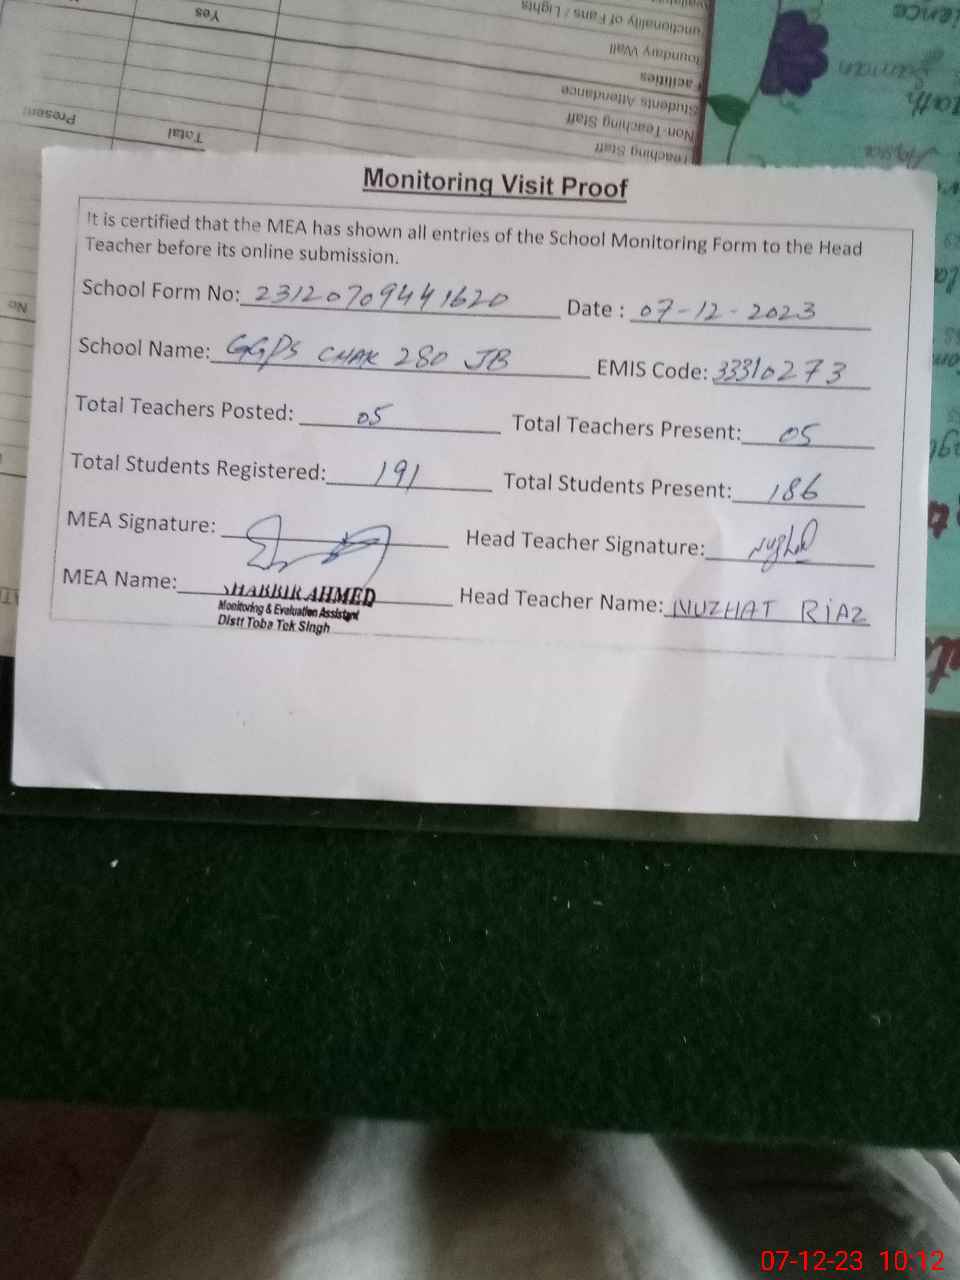 Yes
unctionality of Fans / Lights
oundary Wall
Facilities
Students Attendance
Non-Teaching Staff
Teaching Staff
Total
Present
No
Monitoring Visit Proof
It is certified that the MEA has shown all entries of the School Monitoring Form to the Head
Teacher before its online submission.
School Form No: 23120709441620 Date : 07-12-2023
School Name: GGPS CHAK 280 JB EMIS Code: 33310273
Total Teachers Posted: 05 Total Teachers Present: 05
Total Students Registered: 191 Total Students Present: 186
MEA Signature: Head Teacher Signature: Nuzhat
MEA Name: SHABBIR AHMED Head Teacher Name: NUZHAT RIAZ
Monitoring & Evaluation Assistant
Distt Toba Tek Singh
07-12-23 10:12